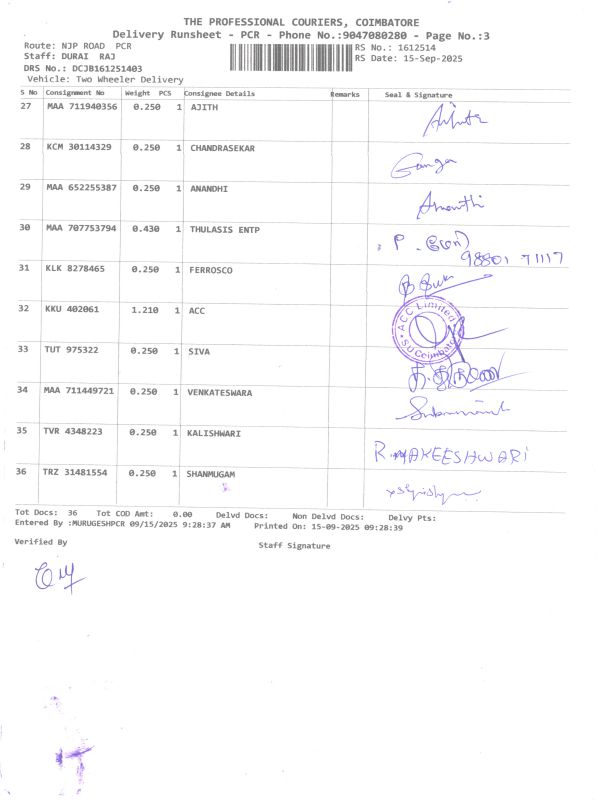 THE PROFESSIONAL COURIERS, COIMBATORE
Delivery Runsheet - PCR - Phone No.:9047080280 - Page No.:3
Route: NJP ROAD PCR
RS No.: 1612514
Staff: DURAI RAJ
RS Date: 15-Sep-2025
DRS No.: DCJB161251403
Vehicle: Two Wheeler Delivery
S No Consignment No Weight PCS Consignee Details Remarks Seal & Signature
27 MAA 711940356 0.250 1 AJITH
28 KCM 30114329 0.250 1 CHANDRASEKAR Ganga
29 MAA 652255387 0.250 1 ANANDHI Ananthi
30 MAA 707753794 0.430 1 THULASIS ENTP
98801 71117
31 KLK 8278465 0.250 1 FERROSCO
32 KKU 402061 1.210 1 ACC
ACC Limited
SU Coimbatore
33 TUT 975322 0.250 1 SIVA
34 MAA 711449721 0.250 1 VENKATESWARA
35 TVR 4348223 0.250 1 KALISHWARI
36 TRZ 31481554 0.250 1 SHANMUGAM
Tot Docs: 36 Tot COD Amt: 0.00 Delvd Docs: Non Delvd Docs: Delvy Pts:
Entered By :MURUGESHPCR 09/15/2025 9:28:37 AM Printed On: 15-09-2025 09:28:39
Verified By Staff Signature